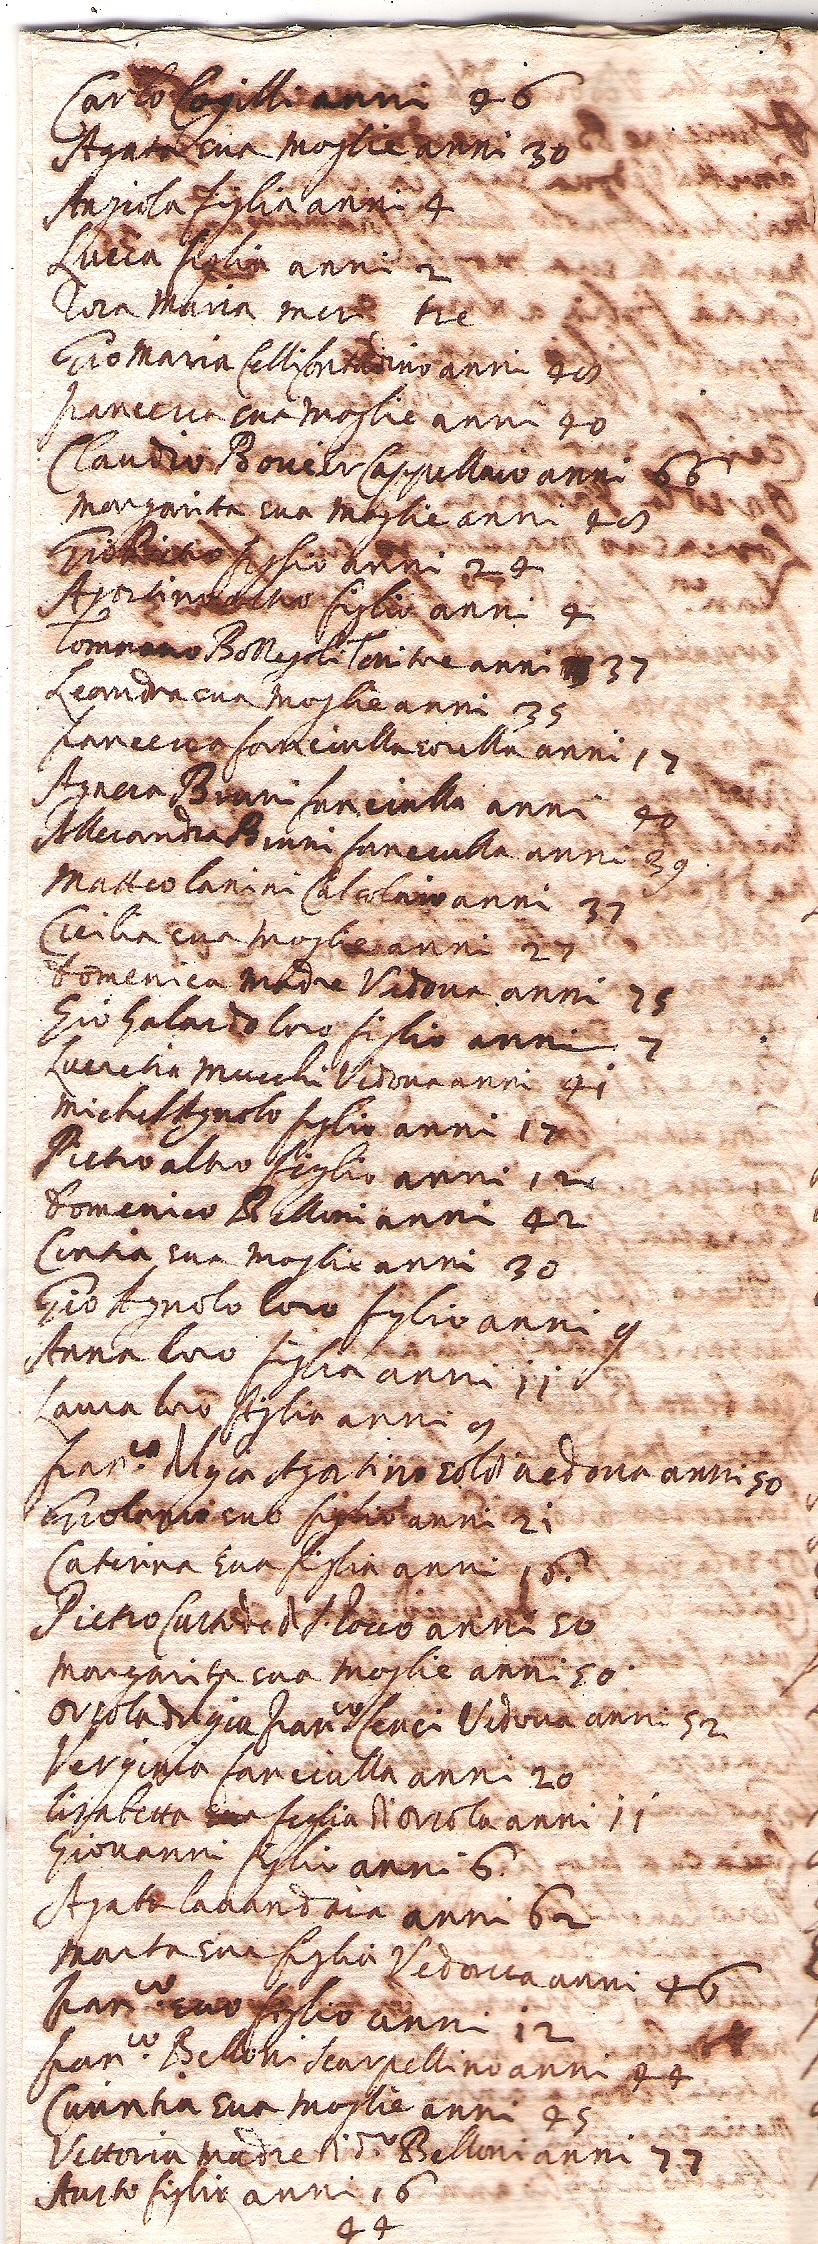 Carlo Cogilli anni 46
Agata sua moglie anni 30
Angiola figlia anni 4
Lucia figlia anni 2
Rosa Maria mesi tre
Gio Maria Celli Contadino anni 48
francesca sua moglie anni 40
Claudio Bovier Cappellaio anni 66
Margarita sua moglie anni 48
Gio figlio anni 24
Agostino altro figlio anni 4
Tommaso Bottegoli anni 37
Leandra sua moglie anni 35
francesca fanciulla sorella anni 17
Agnesa Bruni fanciulla anni 40
Allesandra Bruni fanciulla anni 39
Matteo Lanini Calsolaio anni 37
Cicilia sua moglie anni 27
Domenica madre Vedova anni 75
Gio Galardo loro figlio anni 7
Lucretia Mucchi Vedova anni 41
Michel Agnolo figlio anni 17
Pietro altro figlio anni 12
Domenico Belloni anni 42
Cintia sua moglie anni 30
Gio Agnolo loro figlio anni 9
Anna loro figlia anni 11
Laura loro figlia anni 9
fran.ca Agostino vedova anni 50
suo figlio anni 21
Caterina sua figlia anni 16.
Pietro Custode di S. Rocco anni 50
Margarita sua moglie anni 50.
Orsola fran.co Cenci Vedova anni 52
Verginia fanciulla anni 20
Lisabetta figlia di Orsola anni 11
Giovanni figlio anni 6
Agata lavandaia anni 62
Marta sua figlia Vedova anni 46
fran.co suo figlio anni 12
fran.co Belloni Scarpellino anni 44
Cuintia sua moglie anni 45
Vettoria madre di d.o Belloni anni 77
figlio anni 16
44